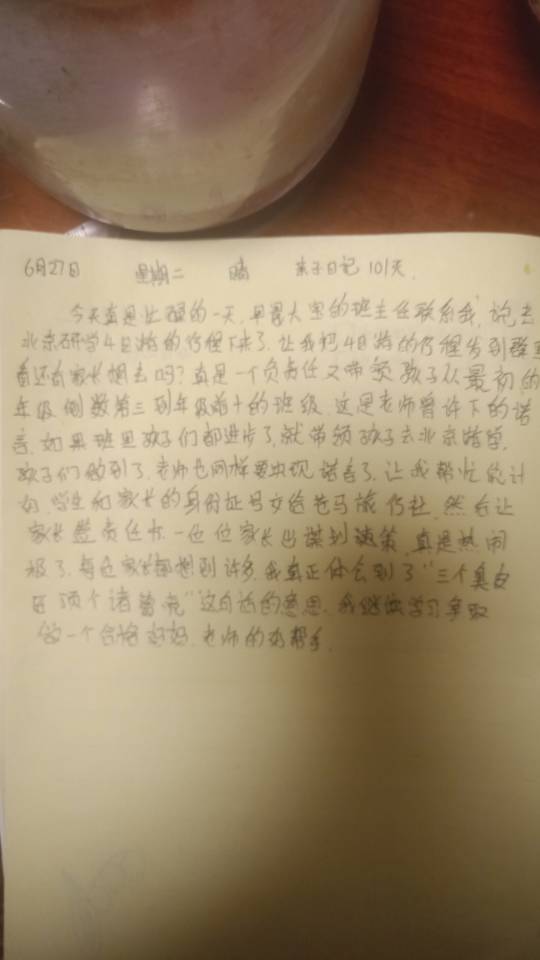 6月27日 星期二 晴 亲子日记101天.
今天真是忙碌的一天,早晨大宝的班主任联系我,说去
北京研学4日游的行程下来了,让我把4日游的行程发到群里
看还有家长想去吗?真是一个负责任又带领孩子从最初的
年级倒数第三到年级前十的班级.这是老师曾许下的诺
言,如果班里孩子们都进步了,就带领孩子去北京游学.
孩子们做到了,老师也同样要实现诺言了,让我帮忙统计
如学生和家长的身份证号交给 马旅行社,然后让
家长签责任书.一位位家长出谋划策,真是热闹
极了.每位家长都想到许多,我真正体会到了“三个臭皮
匠顶个诸葛亮”这句话的意思.我继续学习争取
做一个合格好妈.老师的好帮手.